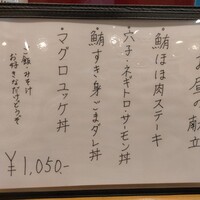 お昼の献立
・鮪ほほ肉ステーキ
・穴子・ネギトロ・サーモン丼
・鮪すき身ごまダレ丼
・マグロユッケ丼
ご飯・みそ汁
お好きなだけどうぞ
¥1,050-